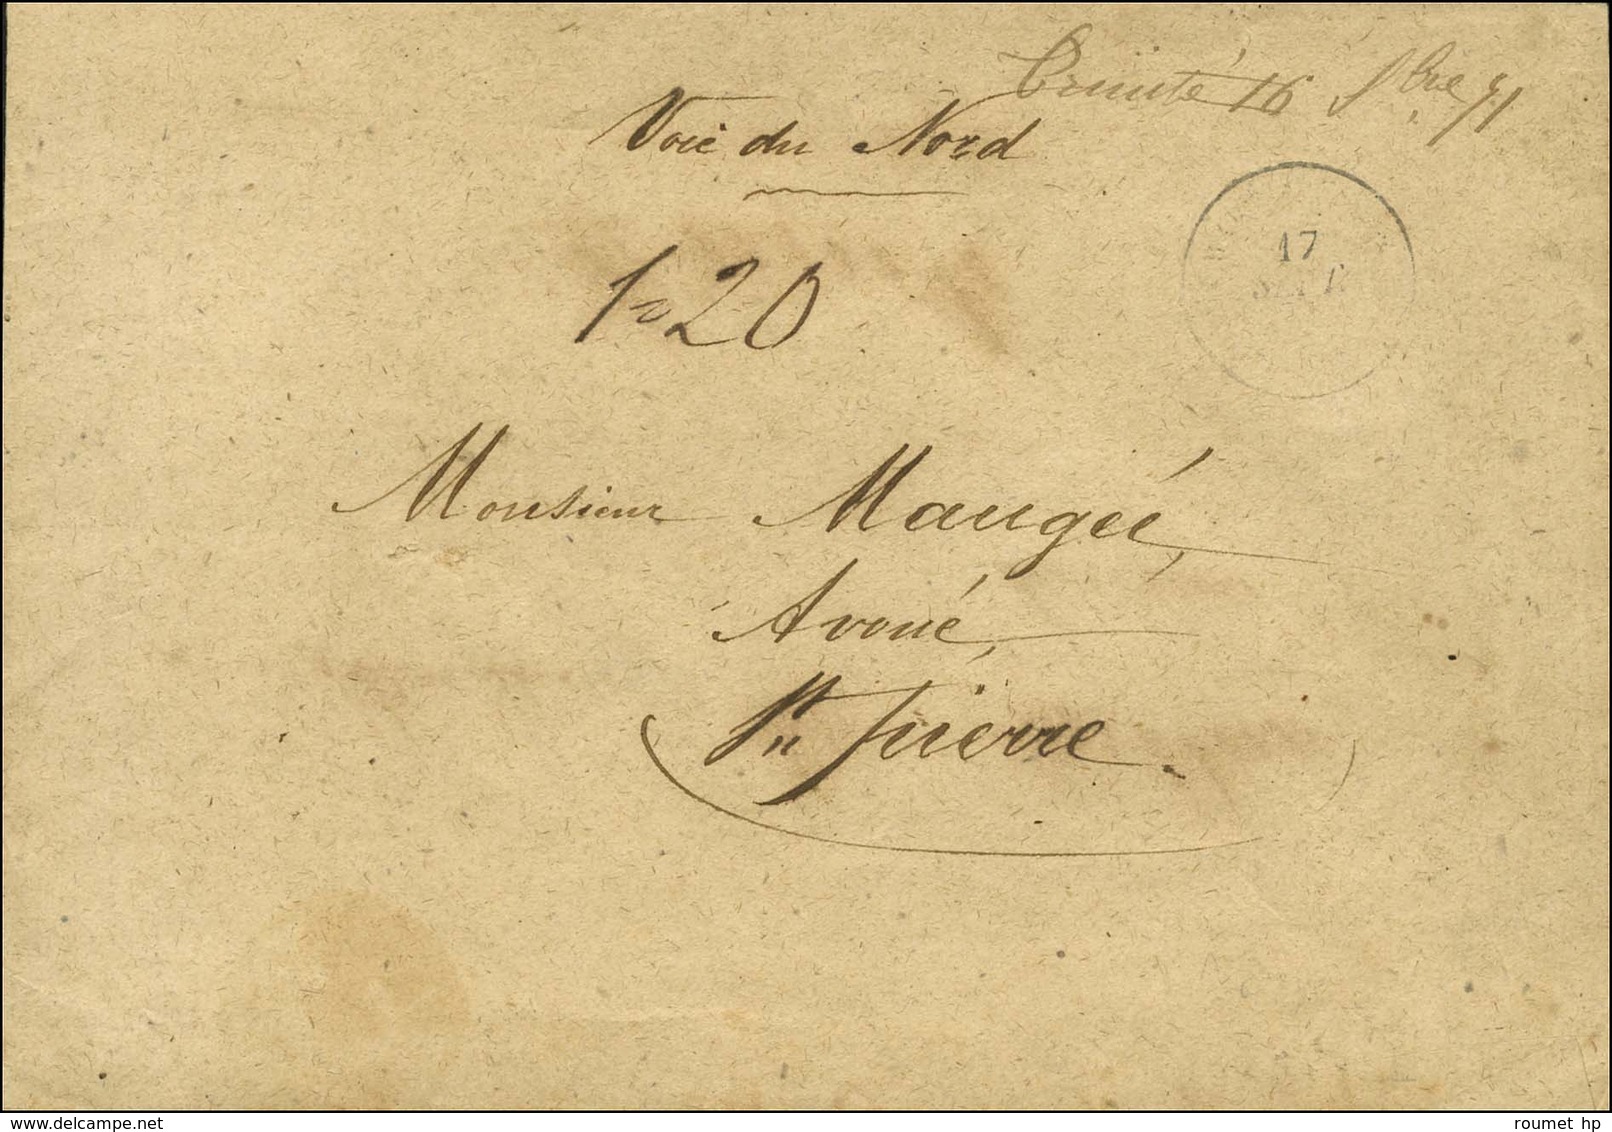 Trinité 16 Sbre 71
Voie du Nord
17
SEPT
1 20
Monsieur Maugeé,
Avoué,
St Pierre.
delcampe.net
roumet hp